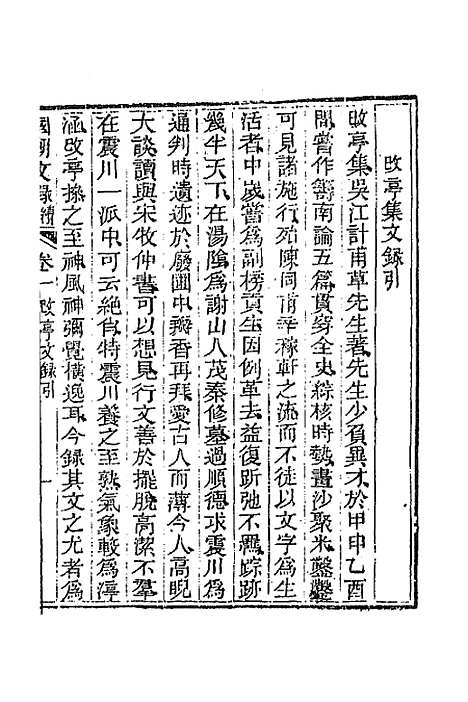 改亭集文録引
改亭集吳江計甫草先生著先生少負異才於甲申乙酉
間嘗作籌南論五篇貫穿全史綜核時勢畫沙聚米鑿鑿
可見諸施行殆陳同甫辛稼軒之流而不徒以文字為生
活者中歲嘗為副榜貢生因例革去益復跅弛不羈踪跡
幾半天下在湯陰為謝山人茂秦修墓過順德求震川為
通判時遺迹於廢圃中瓣香再拜愛古人而薄今人高睨
大談讀與宋牧仲書可以想見行文善於擺脫高潔不羣
在震川一派中可云絶肖特震川養之至熟氣象較為渟
涵改亭操之至神風神彌覺橫逸耳今録其文之尤者為
國朝文録續 卷一 改亭文録引 一